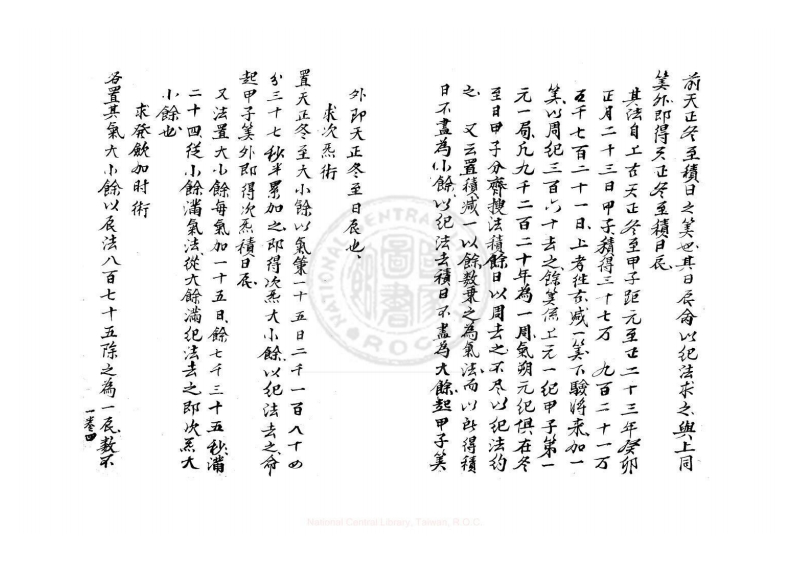 前天正冬至積日之筭也其日辰命以紀法求之與上同
筭外即得天正冬至積日辰
其法自上古天正冬至甲子距元至正二十三年癸卯
正月二十三日甲子積得三十七万 九百二十一万
五千七百二十一日上考往古减一筭下驗將來加一
筭以周紀三百六十去之餘筭係上元一紀甲子第一
元一局凡九千二百二十年為一周氣朔元紀俱在冬
至日甲子分齊搜法積餘日以周去之不尽以紀法約
之 又云置積减一以餘数乗之為氣法而以所得積
日不盡為小餘以紀法去積日不盡為大餘起甲子筭
外即天正冬至日辰也
求次炁術
置天正冬至大小餘以氣策一十五日二千一百八十四
分三十七秒半累加之即得次炁大小餘以紀法去之命
起甲子筭外即得次炁積日辰
又法置大小餘每氣加一十五日餘七千三十五秒滿
二十四從小餘滿氣法從大餘滿紀法去之即次炁大
小餘也
求發歛加时術
各置其氣大小餘以辰法八百七十五除之為一辰数不
一卷四
NATIONAL CENTRAL
圖書館
R.O.C.
National Central Library, Taiwan, R.O.C.